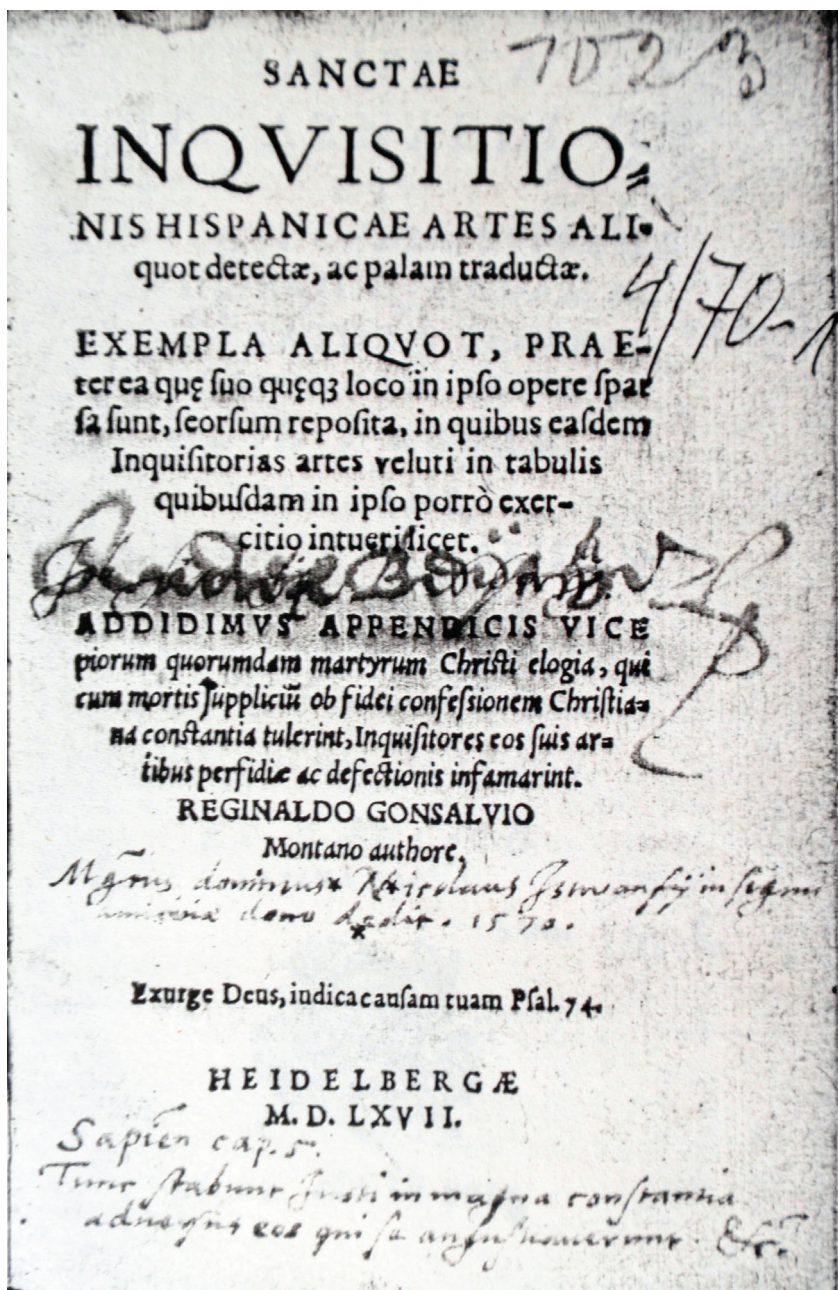 1023
SANCTAE
INQVISITIO⸗
NIS HISPANICAE ARTES ALI-
quot detectæ, ac palam traductæ.
4/70-1
EXEMPLA ALIQVOT, PRAE-
ter ea quę suo quęqꝫ loco in ipso opere spar
sa sunt, seorsum reposita, in quibus easdem
Inquisitorias artes veluti in tabulis
quibusdam in ipso porrò exer-
citio intueri licet.
ADDIDIMVS APPENDICIS VICE
piorum quorumdam martyrum Christi elogia, qui
cum mortis suppliciũ ob fidei confessionem Christia⸗
na constantia tulerint, Inquisitores eos suis ar⸗
tibus perfidiæ ac defectionis infamarint.
REGINALDO GONSALVIO
Montano authore,
dominus Nicolaus Istwanfy in signum
amicitiæ dono dedit. 1570.
Exurge Deus, iudica causam tuam Psal. 74.
HEIDELBERGÆ
M. D. LXVII.
Sapien cap. 5.
Tunc stabunt Iusti in magna constantia
aduersus eos qui se angustiauerunt. &c.